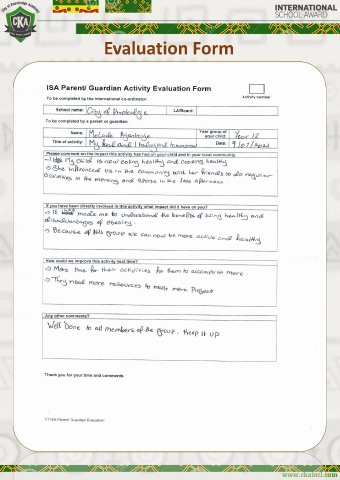 City of Knowledge Academy
CKA
INTERNATIONAL
SCHOOL AWARD
Evaluation Form
ISA Parent/ Guardian Activity Evaluation Form
To be completed by the international co-ordinator:
Activity number
School name: City of Knowledge
LA/Board:
To be completed by a parent or guardian:
Name: Ajantoye
Year group of your child: Year 12
Title of activity: My food and I today and tomorrow
Date:
Please comment on the impact this activity has had on your child and in your local community.
My child is now eating healthy and cooking healthy
→ She influenced us in the community with her friends to do regular
exercises in the morning and in the late afternoon
If you have been directly involved in this activity what impact did it have on you?
→ It made me to understand the benefits of being healthy and
disadvantages of obesity.
→ Because of this group we can now be more active and healthy
How could we improve this activity next time?
→ More time for their activities for them to accomplish more.
→ They need more resources to make more Project
Any other comments?
Well Done to all members of the group. Keep it up
Thank you for your time and comments.
ISA Parent/ Guardian Evaluation
www.ckaintl.com